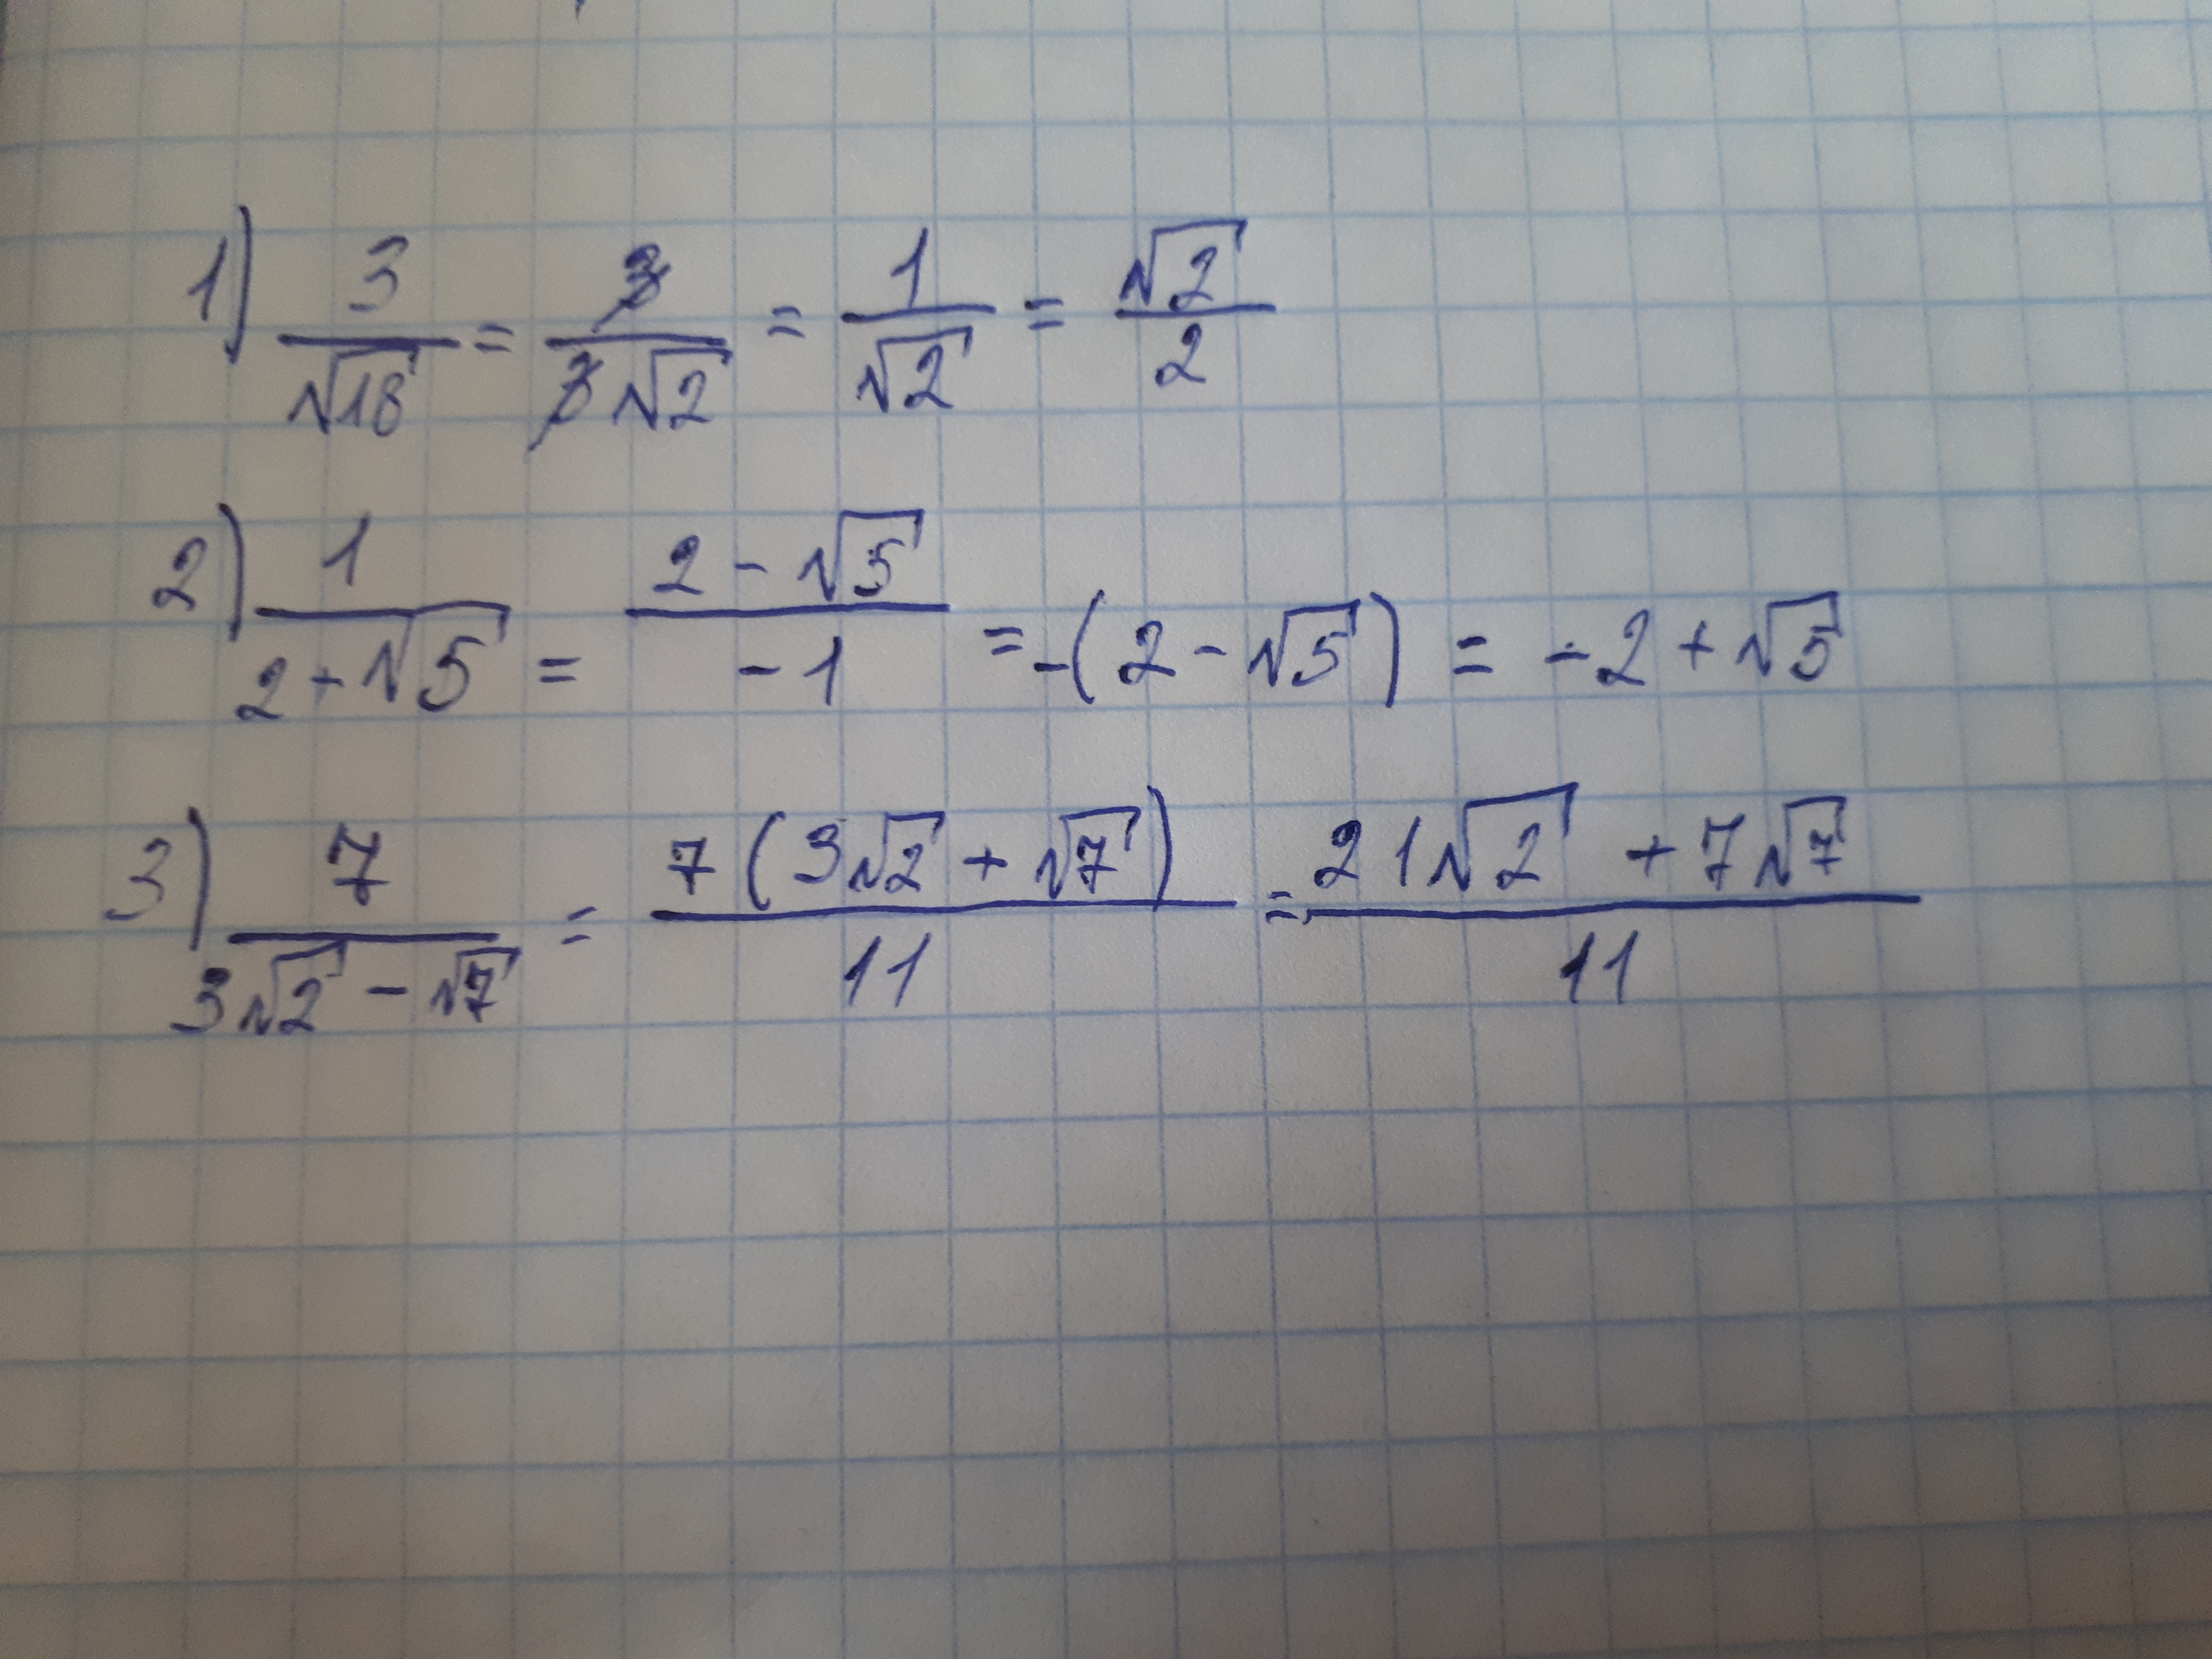 1) 3/√18 = 3/3√2 = 1/√2 = √2/2
2) 1/2+√5 = 2-√5/-1 = -(2-√5) = -2+√5
3) 7/3√2-√7 = 7(3√2+√7)/11 = 21√2+7√7/11